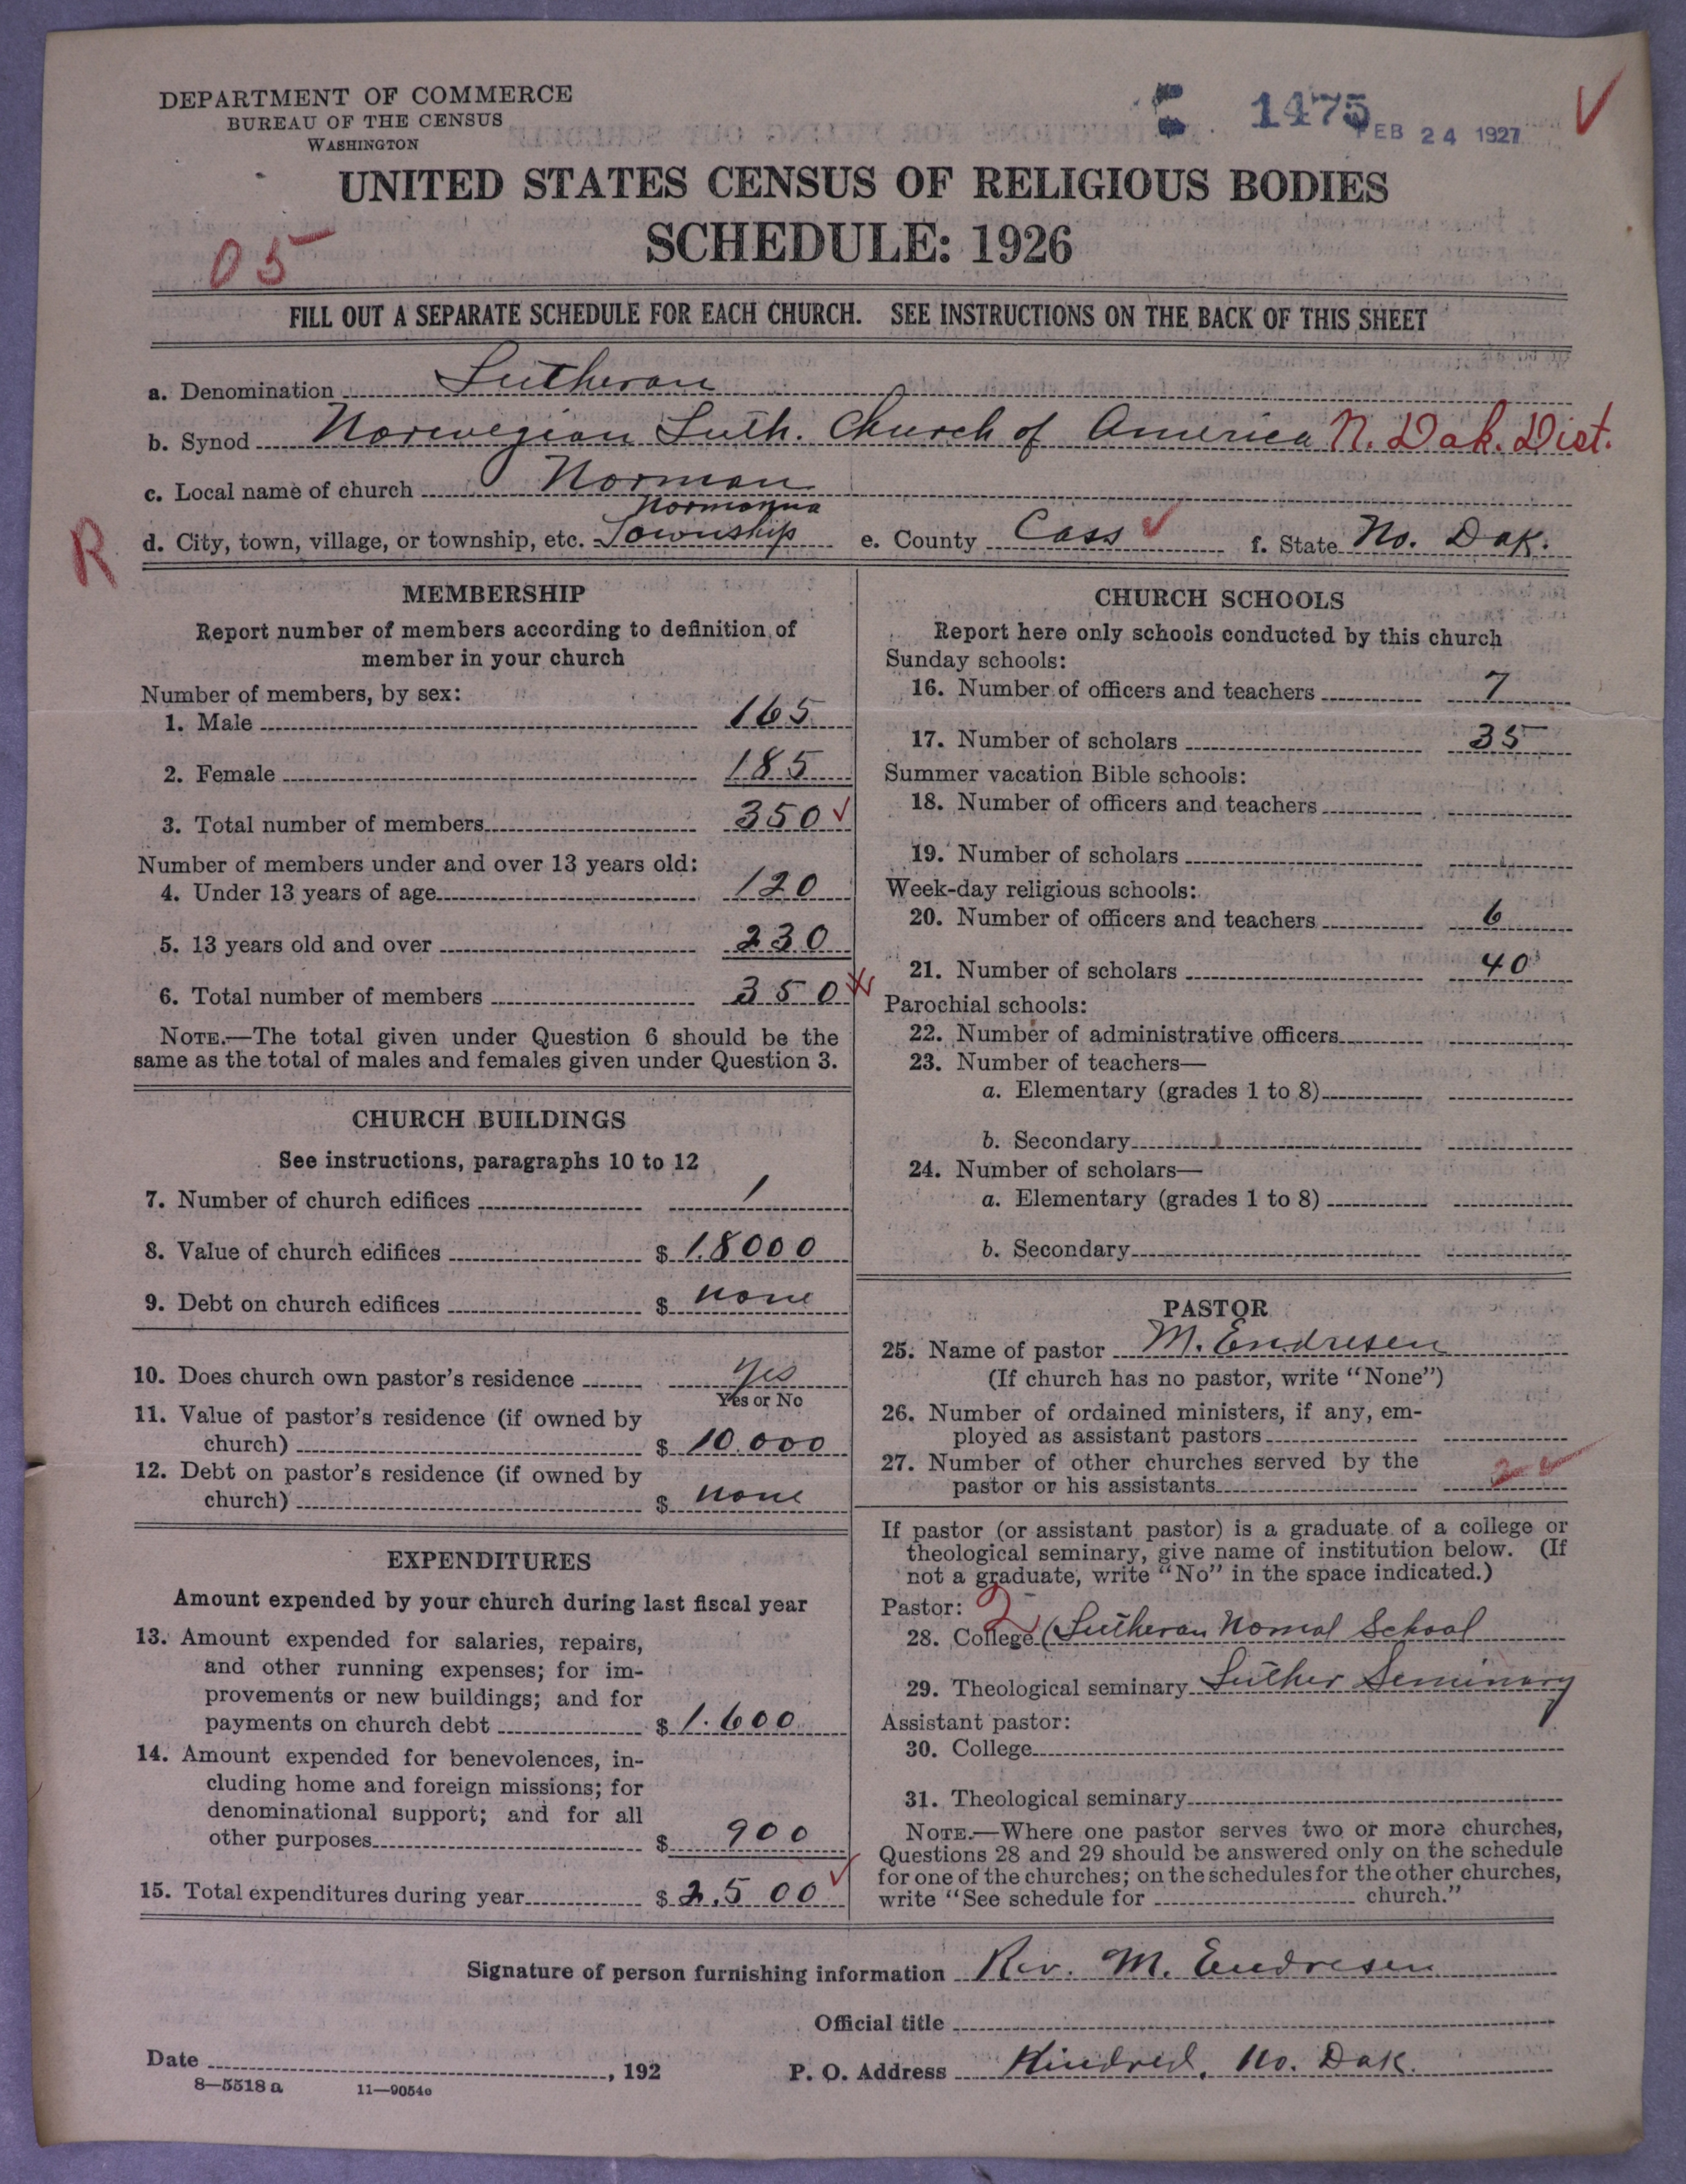 DEPARTMENT OF COMMERCE
BUREAU OF THE CENSUS
WASHINGTON
1475
FEB 24 1927
UNITED STATES CENSUS OF RELIGIOUS BODIES
SCHEDULE: 1926
05
FILL OUT A SEPARATE SCHEDULE FOR EACH CHURCH. SEE INSTRUCTIONS ON THE BACK OF THIS SHEET
a. Denomination Lutheran
b. Synod Norwegian Luth. Church of America N. Dak. Dist.
c. Local name of church Norman
R
d. City, town, village, or township, etc. Normanna Township e. County Cass f. State No. Dak.
MEMBERSHIP
Report number of members according to definition of
member in your church
Number of members, by sex:
1. Male 165
2. Female 185
3. Total number of members 350
Number of members under and over 13 years old:
4. Under 13 years of age 120
5. 13 years old and over 230
6. Total number of members 350
NOTE.—The total given under Question 6 should be the
same as the total of males and females given under Question 3.
CHURCH BUILDINGS
See instructions, paragraphs 10 to 12
7. Number of church edifices 1
8. Value of church edifices $ 18000
9. Debt on church edifices $ none
10. Does church own pastor's residence yes
Yes or No
11. Value of pastor's residence (if owned by
church) $ 10.000
12. Debt on pastor's residence (if owned by
church) $ none
EXPENDITURES
Amount expended by your church during last fiscal year
13. Amount expended for salaries, repairs,
and other running expenses; for im-
provements or new buildings; and for
payments on church debt $ 1.600
14. Amount expended for benevolences, in-
cluding home and foreign missions; for
denominational support; and for all
other purposes $ 900
15. Total expenditures during year $ 2,500
CHURCH SCHOOLS
Report here only schools conducted by this church
Sunday schools:
16. Number of officers and teachers 7
17. Number of scholars 35
Summer vacation Bible schools:
18. Number of officers and teachers
19. Number of scholars
Week-day religious schools:
20. Number of officers and teachers 6
21. Number of scholars 40
Parochial schools:
22. Number of administrative officers
23. Number of teachers—
a. Elementary (grades 1 to 8)
b. Secondary
24. Number of scholars—
a. Elementary (grades 1 to 8)
b. Secondary
PASTOR
25. Name of pastor M. Endresen
(If church has no pastor, write "None")
26. Number of ordained ministers, if any, em-
ployed as assistant pastors
27. Number of other churches served by the
pastor or his assistants 2
If pastor (or assistant pastor) is a graduate of a college or
theological seminary, give name of institution below. (If
not a graduate, write "No" in the space indicated.)
Pastor: 2
28. College (Lutheran Nomal School
29. Theological seminary Luther Seminary
Assistant pastor:
30. College
31. Theological seminary
NOTE.—Where one pastor serves two or more churches,
Questions 28 and 29 should be answered only on the schedule
for one of the churches; on the schedules for the other churches,
write "See schedule for church."
Signature of person furnishing information Rev. M. Endresen
Official title
Date , 192 P. O. Address Kindred, No. Dak.
8—5518 a 11—9054c